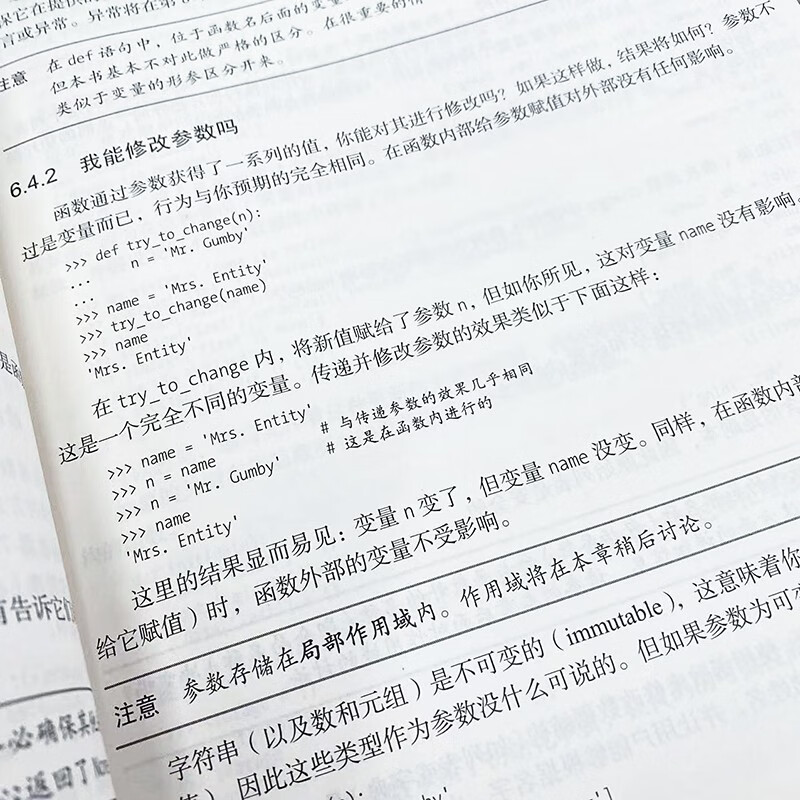 言或异常。异常将在第
注意 在 def 语句中，位于函数名后面的变量
但本书基本不对此做严格的区分。在很重要的情
类似于变量的形参区分开来。
6.4.2 我能修改参数吗
函数通过参数获得了一系列的值，你能对其进行修改吗？如果这样做，结果将如何？参数不
过是变量而已，行为与你预期的完全相同。在函数内部给参数赋值对外部没有任何影响。
>>> def try_to_change(n):
... n = 'Mr. Gumby'
...
>>> name = 'Mrs. Entity'
>>> try_to_change(name)
>>> name
'Mrs. Entity'
在 try_to_change 内，将新值赋给了参数 n，但如你所见，这对变量 name 没有影响。
这是一个完全不同的变量。传递并修改参数的效果类似于下面这样：
>>> name = 'Mrs. Entity'
>>> n = name # 与传递参数的效果几乎相同
>>> n = 'Mr. Gumby' # 这是在函数内进行的
>>> name
'Mrs. Entity'
这里的结果显而易见：变量 n 变了，但变量 name 没变。同样，在函数内部
给它赋值）时，函数外部的变量不受影响。
注意 参数存储在局部作用域内。作用域将在本章稍后讨论。
字符串（以及数和元组）是不可变的（immutable），这意味着你
值）。因此这些类型作为参数没什么可说的。但如果参数为可变
告诉它们
必确保其
返回了